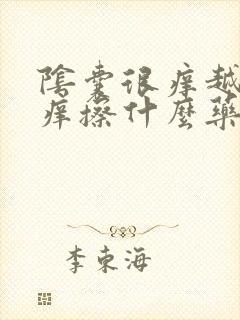 陰囊很痒越
痒擦什麼藥
李東海